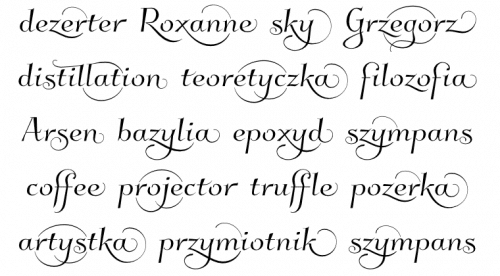 dezerter Roxanne sky Grzegorz
distillation teoretyczka filozofia
Arsen bazylia epoxyd szympans
coffee projector truffle pozerka
artystka przymiotnik szympans